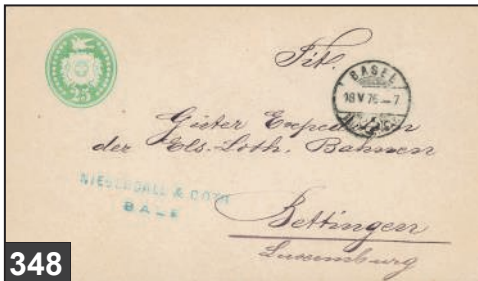 25
Tit.
BASEL
18 V 76 – 7
Güter Expedition
der Els.-Loth. Bahnen
& COTH
BALE
Bettingen
Luxemburg
348